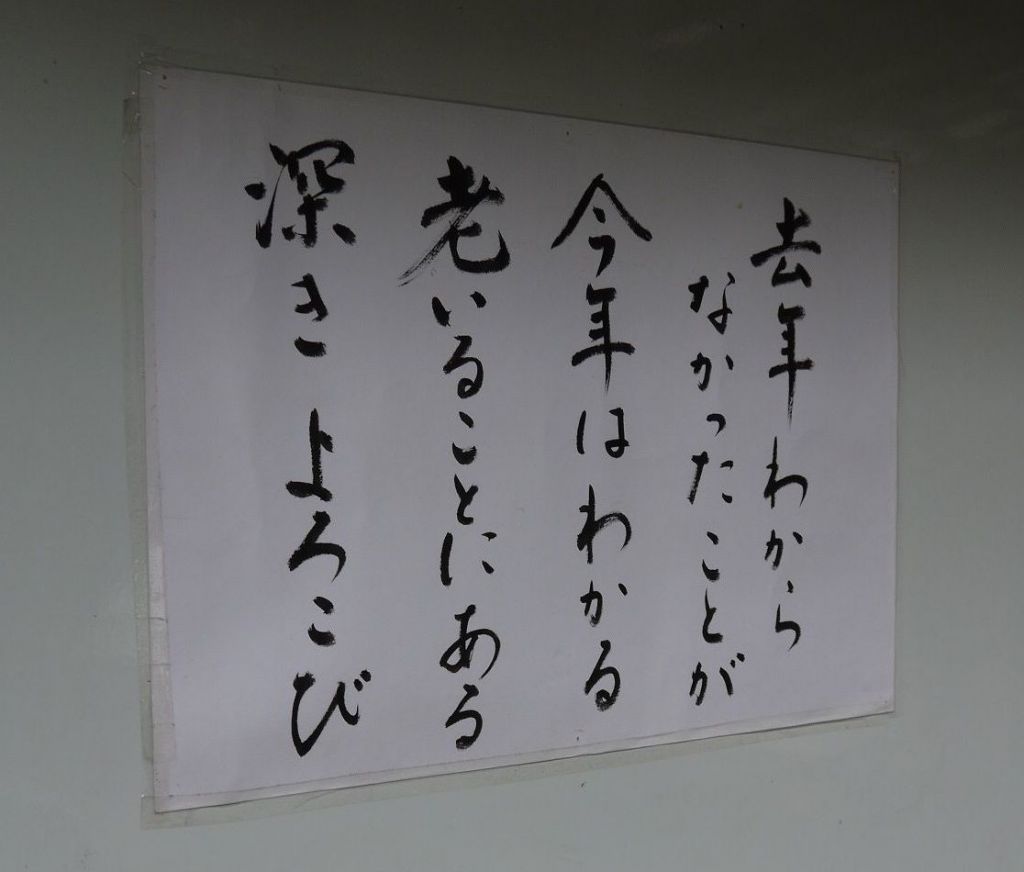 去年わから
なかったことが
今年はわかる
老いることにある
深きよろこび